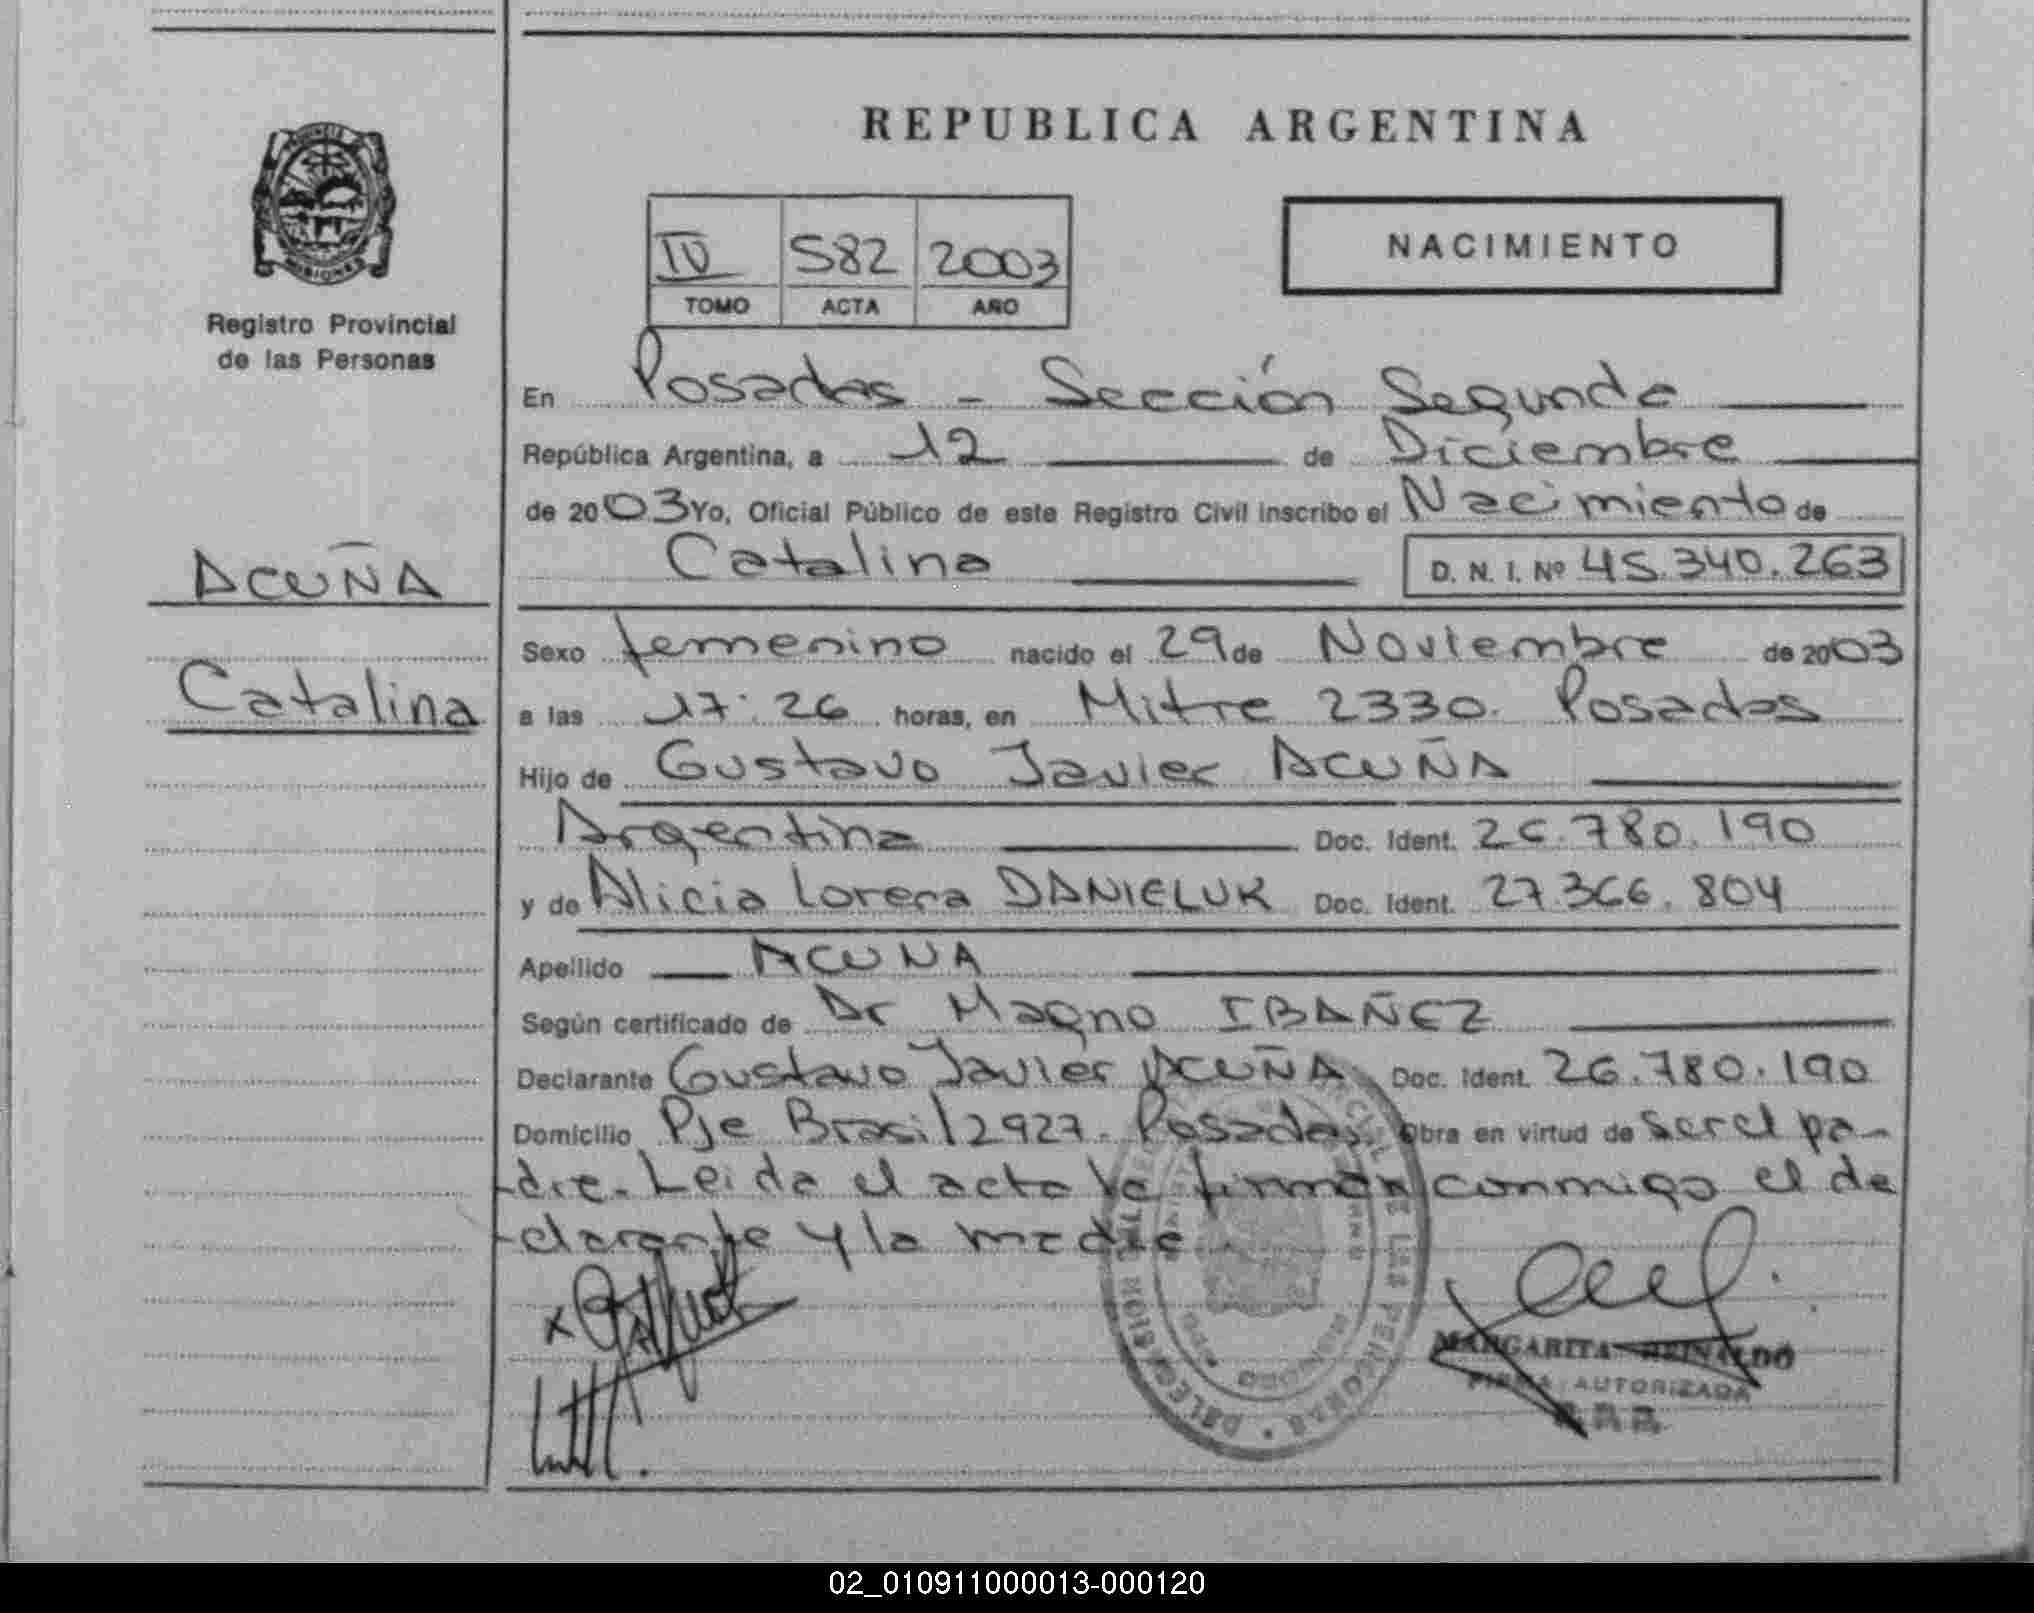 REPUBLICA ARGENTINA
PROVINCIA
MISIONES
Registro Provincial
de las Personas
IV 582 2003
TOMO ACTA AÑO
NACIMIENTO
En Posadas - Sección Segunda
República Argentina, a 12 de Diciembre
de 2003 Yo, Oficial Público de este Registro Civil inscribo el Nacimiento de
Catalina D. N. I. Nº 45.340.263
ACUÑA
Catalina
Sexo femenino nacido el 29 de Noviembre de 2003
a las 17:26 horas, en Mitre 2330. Posadas
Hijo de Gustavo Javier ACUÑA
Argentina Doc. Ident. 26.780.190
y de Alicia Lorena DANIELUK Doc. Ident. 27.366.804
Apellido ACUNA
Según certificado de Dr Magno IBAÑEZ
Declarante Gustavo Javier ACUÑA Doc. Ident. 26.780.190
Domicilio Pje Brasil 2927. Posadas. Obra en virtud de ser el pa-
dre. Leida el acta la firman conmigo el de
clarante y la madre.
MARGARITA REINALDO
FIRMA AUTORIZADA
02_010911000013-000120